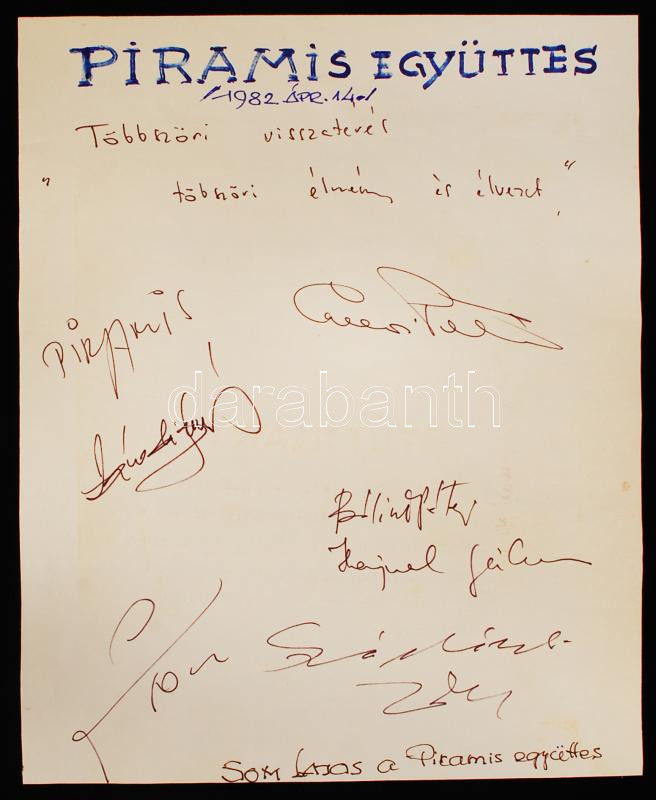 PIRAMIS EGYÜTTES
/1982 ÁPR. 14./
Többszöri visszatérés
" töbszöri élmény és élvezet"
PIRAMIS
darabanth
Bálint Péter
Hajnal Gábor
Som
SOM LAJOS a Piramis együttes